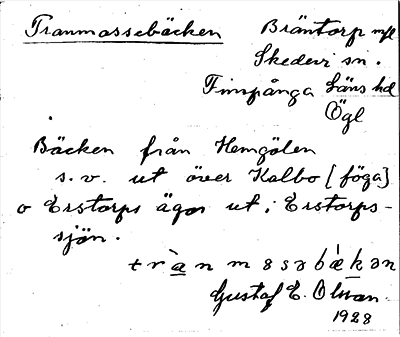 Tranmossebäcken
Bräntorp mfl
Skedevi sn.
Finspånga läns hd
Ögl
Bäcken från Hemgölen
s.v. ut över Kalbo [föga]
o Erstorps ägor ut i Erstorps-
sjön.
Gustaf E. Olsson.
1928